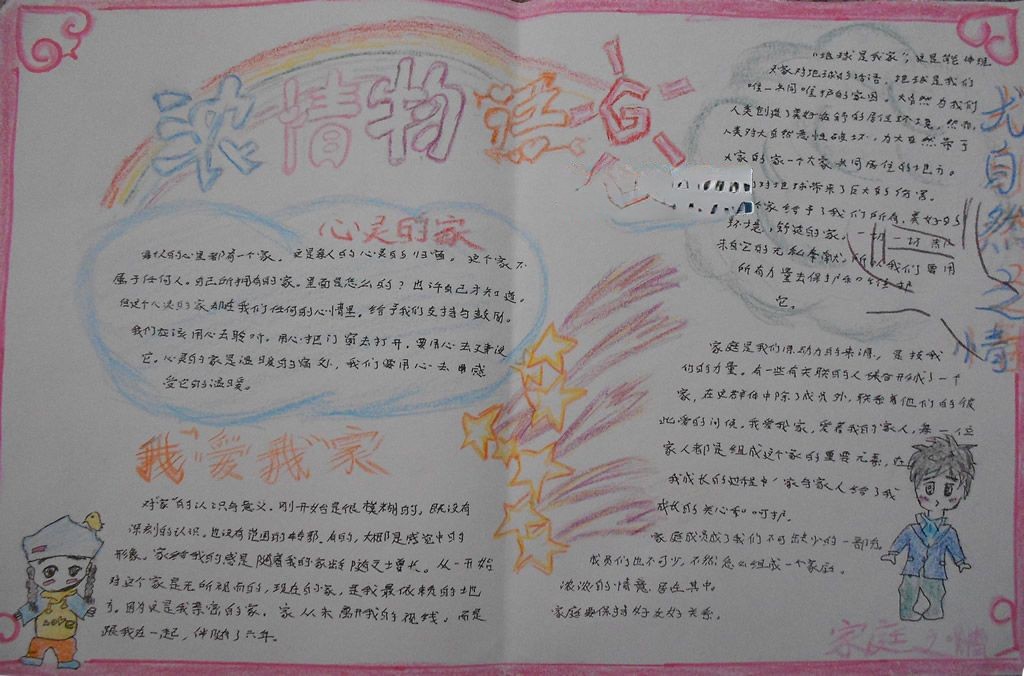 浓情物语
心灵的家
每个人的心里都有一个家。这是每人的心灵的归宿。这个家不
属于任何人。自己所拥有的家。里面是怎么的？也许自己才知道。
但这个心灵的家却在我们任何的心情里。给予我们支持与鼓励。
我们应该用心去聆听。用心把门窗去打开。要用心去
它。心灵的家是温暖的，我们要用心去感
受它的温暖。
我"爱我"家
对"家"的认识与意义。刚开始是很模糊的，既没有
深刻的认识。也没有范围的。有的，大都是感觉中的
形象。家给我的感是随着我的家随之增长。从一开始
对这个家是无所视而的，现在的家，是我最依赖的地
方。因为这是我亲密的家。家从未离开我的视线。而是
跟我在一起，伴随了六年。
"地球是我家"，这是能体现
大家对地球的话语，地球是我们
唯一共同维护的家园。大自然为我们
人类创造了美好舒的居住环境，然而，
人类对大自然恶性破坏，为大自然带
大家的家一个大家共同居住的地方。
对地球带来了巨大的伤害。
家给予了我们所有，美好的
环境，舒适的家。一切一切
来自它的无私奉献。所以我们要用
所有力量去保护和
它。
尤自然之情
家庭是我们原动力的来源，是我
们的力量。有一些有关联的人组合而成了一个
家，在这群体中除了成员外，联系着他们的彼
此爱的问候。我爱我家，爱着我的家人，每一位
家人都是组成这个家的重要元素，在
我成长的过程中，家与家人给了我
成长的关心和呵护。
家庭成员成了我们不可缺少的一部份
成员们也不可少，不然怎么组成一个家庭。
浓浓的情意，居在其中。
家庭要保持好友好关系。
家庭之情